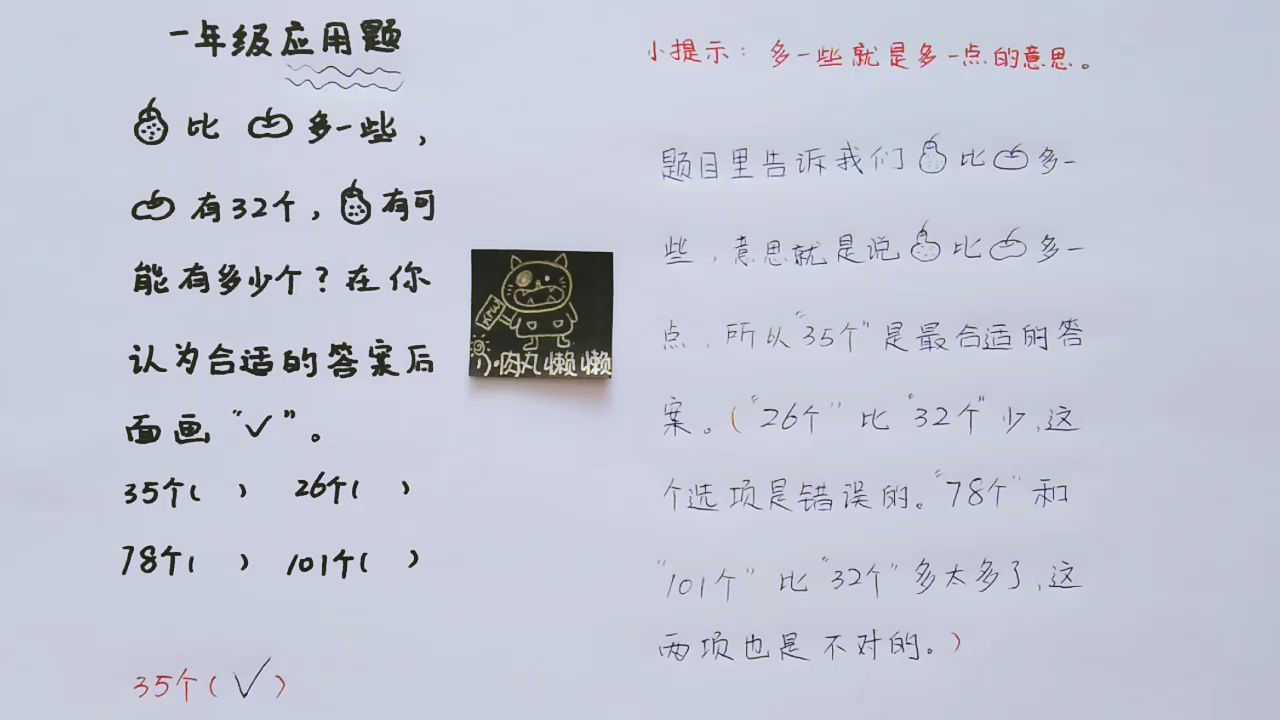 一年级应用题
比多一些,
有32个,有可
能有多少个?在你
认为合适的答案后
面画“✓”。
35个( ) 26个( )
78个( ) 101个( )
35个(✓)
小肉丸懒懒
小提示:多一些就是多一点的意思。
题目里告诉我们比多一
些,意思就是说比多一
点,所以“35个”是最合适的答
案。(“26个”比“32个”少,这
个选项是错误的。“78个”和
“101个”比“32个”多太多了,这
两项也是不对的。)